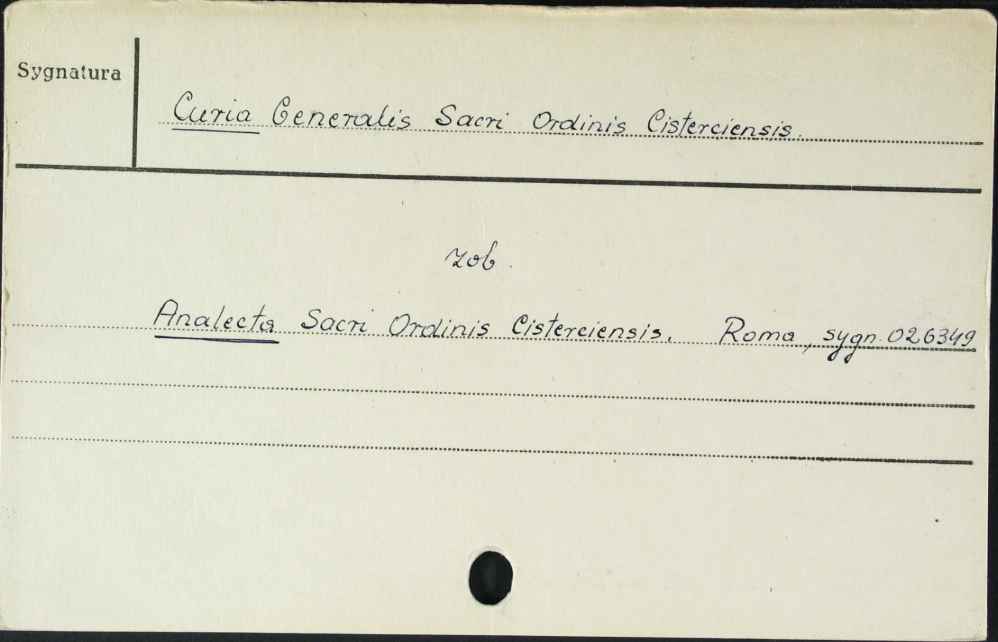 Sygnatura
Curia Generalis Sacri Ordinis Cisterciensis.
zob.
Analecta Sacri Ordinis Cisterciensis. Roma, sygn. 026349